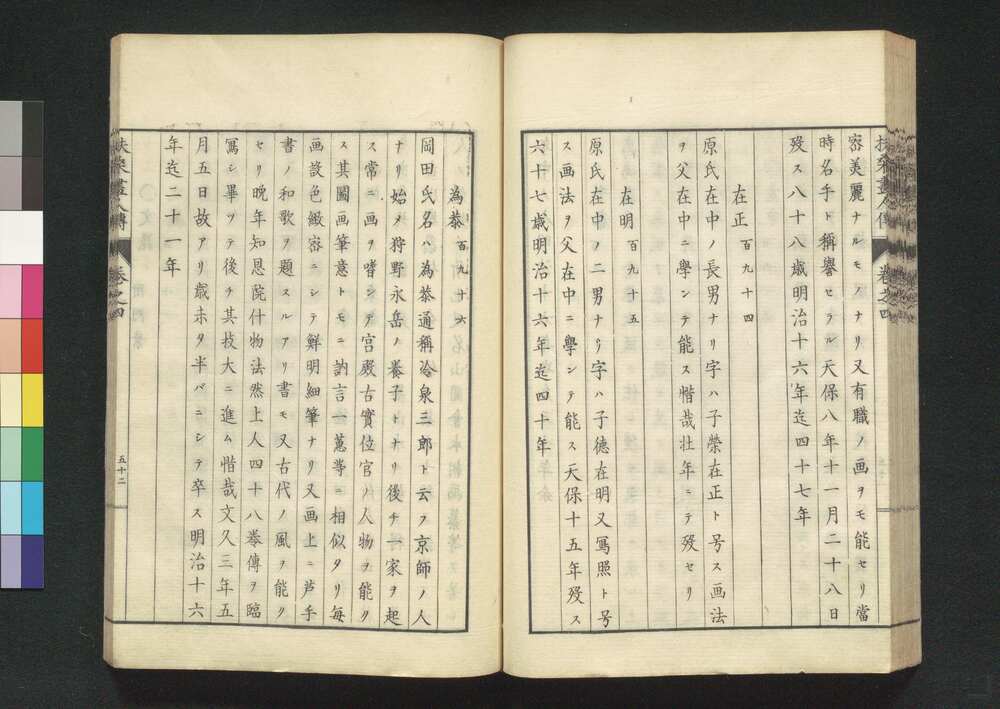 扶桑畫人傳 卷之四
容美麗ナルモノナリ又有職ノ画ヲモ能セリ當
時名手ト稱譽セラル天保八年十一月二十八日
歿ス八十八歳明治十六年迄四十七年
在正 百九十四
原氏在中ノ長男ナリ字ハ子榮在正ト号ス画法
ヲ父在中ニ學ンテ能ス惜哉壮年ニテ歿セリ
在明 百九十五
原氏在中ノ二男ナリ字ハ子德在明又寫照ト号
ス画法ヲ父在中ニ學ンテ能ス天保十五年歿ス
六十七歳明治十六年迄四十年
為恭 百九十六
岡田氏名ハ為恭通稱冷泉三郎ト云ヲ京師ノ人
ナリ始メ狩野永岳ノ養子トナリ後チ一家ヲ起
ス常ニ画ヲ嗜ミテ宮殿古實位官ノ人物ヲ能ク
ス其圖画筆意トモニ訥言一蕙等ニ相似タリ毎
画設色緻密ニシテ鮮明細筆ナリ又画上ニ芦手
書ノ和歌ヲ題スルアリ書モ又古代ノ風ヲ能ク
セリ晩年知恩院什物法然上人四十八巻傳ヲ臨
寫シ畢ヲテ後チ其技大ニ進ム惜哉文久三年五
月五日故アリ歳未タ半バニシテ卒ス明治十六
年迄二十一年
扶桑畫人傳 卷之四 五十二